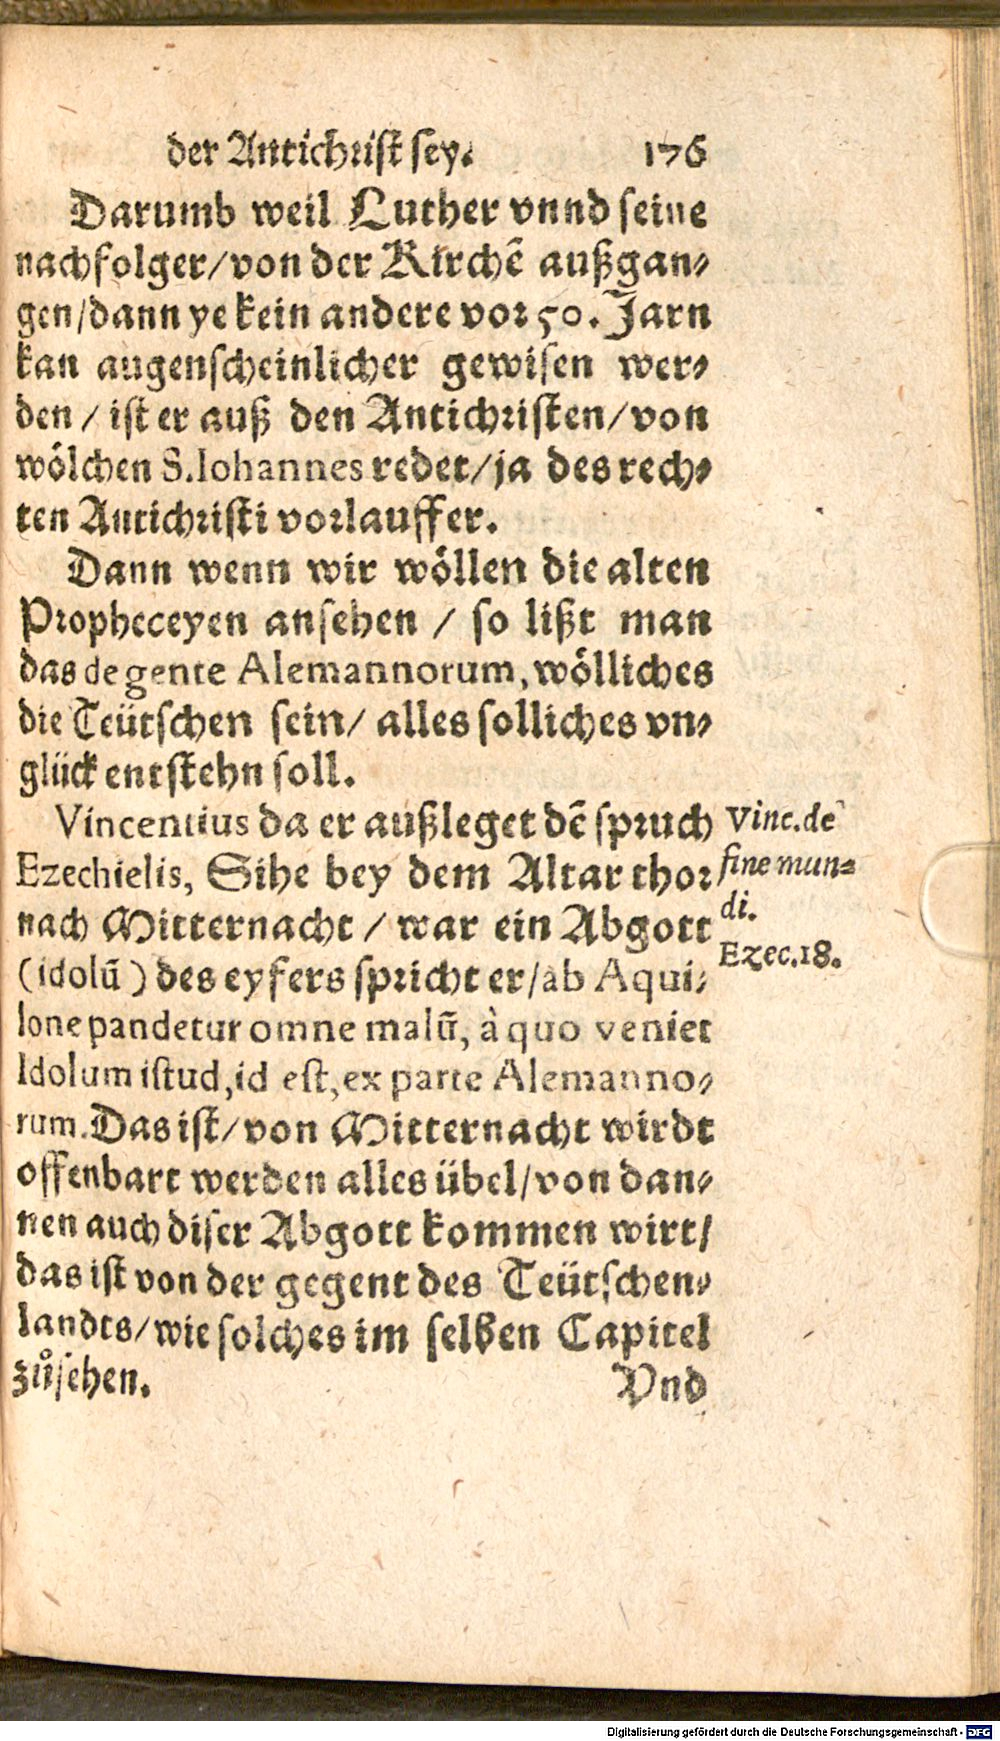 der Antichrist sey. 176
Darumb weil Luther vnnd seine
nachfolger/von der Kirchẽ außgan-
gen/dann ye kein andere vor 50. Jarn
kan augenscheinlicher gewisen wer-
den / ist er auß den Antichristen/von
wölchen S. Iohannes redet/ja des rech-
ten Antichristi vorlauffer.
Dann wenn wir wöllen die alten
Propheceyen ansehen / so lißt man
das de gente Alemannorum, wölliches
die Teütschen sein/ alles solliches vn-
glück entstehn soll.
Vincentius da er außleget dẽ spruch
Ezechielis, Sihe bey dem Altar thor
nach Mitternacht / war ein Abgott
(idolũ) des eyfers spricht er/ab Aqui-
lone pandetur omne malũ, à quo veniet
Idolum istud, id est, ex parte Alemanno-
rum. Das ist/von Mitternacht wirdt
offenbart werden alles übel/von dan-
nen auch diser Abgott kommen wirt/
das ist von der gegent des Teütschen-
landts/wie solches im selben Capitel
zůsehen.
Vnd
Vinc. de
fine mun-
di.
Ezec. 18.
Digitalisierung gefördert durch die Deutsche Forschungsgemeinschaft - DFG